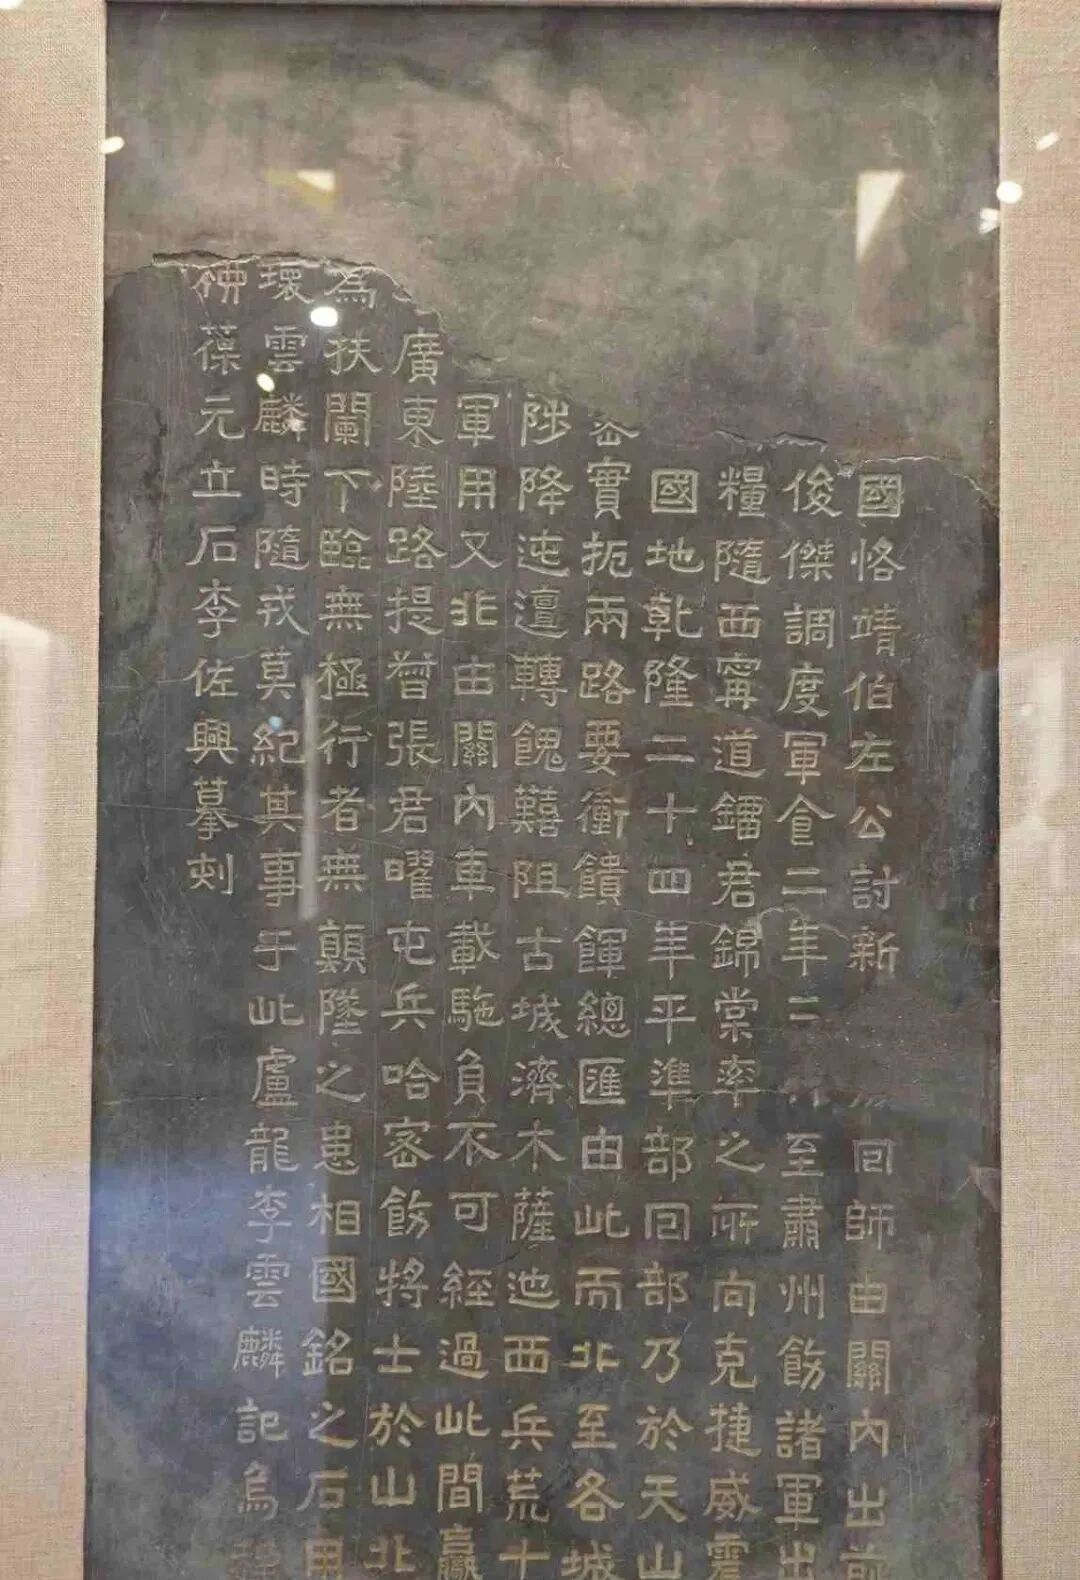 國恪靖伯左公討新回師由關內出前
俊傑調度軍食二年二至肅州飭諸軍出
糧隨西甯道鎦君錦棠率之所向克捷威震
國地乾隆二十四年平準部回部乃於天山
實扼兩路要衝饋餫總匯由此而北至各城
陟降迍邅轉餽囏阻古城濟木薩池西兵荒十
軍用又北由關內車載駞負不可經過此間贏
廣東陸路提督張君曜屯兵哈密飭將士於山北
為扶闌下臨無極行者無顛墜之患相國銘之石用
環雲麟時隨戎莫紀其事于此盧龍李雲麟記烏
葆元立石李佐興摹刻